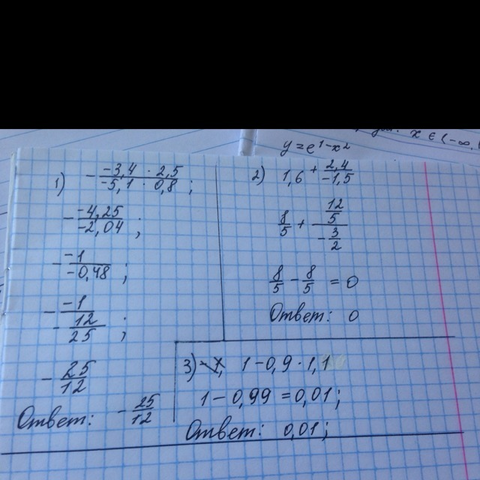 y = e^{1-x^2}
x ∈ (-∞,
1) - \frac{-3,4 · 2,5}{-5,1 · 0,8} ;
- \frac{-4,25}{-2,04} ;
- \frac{-1}{-0,48} ;
- \frac{-1}{-\frac{12}{25}} ;
- \frac{25}{12}
Ответ: - \frac{25}{12}
2) 1,6 + \frac{2,4}{-1,5}
\frac{8}{5} + \frac{\frac{12}{5}}{-\frac{3}{2}}
\frac{8}{5} - \frac{8}{5} = 0
Ответ: 0
3) 1 - 0,9 · 1,1
1 - 0,99 = 0,01 ;
Ответ: 0,01 ;